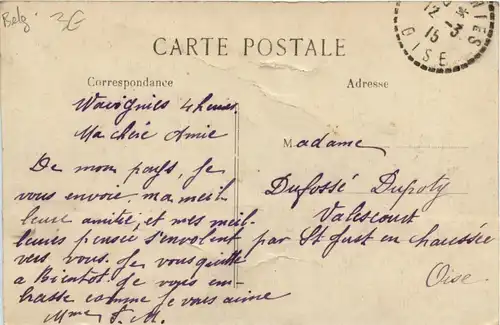 Belg. 3E
12 * -3
15
OISE
CARTE POSTALE
Correspondance
Adresse
Wavignies 4 heures.
Ma chère Amie
De mon pays, Je
vous envoie ma meil
leure amitié, et mes meil-
leures pensée s'envolent
vers vous. Je vous quitte
a Bientot. Je vous em-
brasse comme je vous aime
Mme
Madame
Dufossé Dupoty
Valescourt
par St Just en chaussée
Oise.